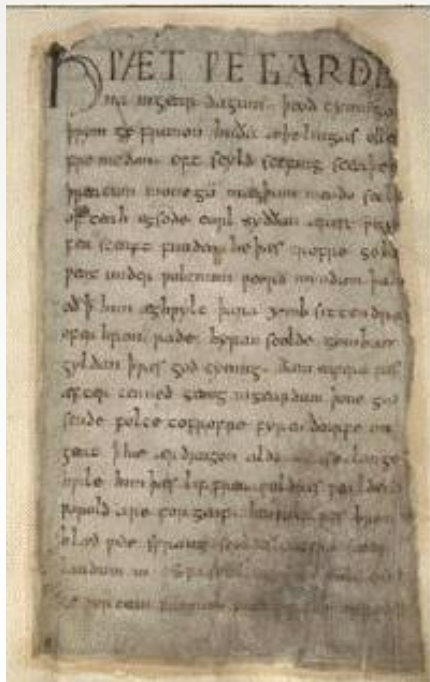 HǷÆT ǷE GARDE
na ingear dagum. þeod cyninga
þrym ge frunon huða æþelingas elle
fremedon. oft scyld scefing sceaþe
þreatum monegū mægþum meodo setl
of teah egsode eorl syððan ærest
fea sceaft funden he þæs frofre geba
ƿeox under ƿolcnum ƿeorð myndum þah
oð þ him æghƿylc þara ymb sittendra
ofer hron rade hyran scolde gomban
gyldan þ ƿæs god cyning. ðæm eafera ƿæs
æfter cenned geong ingeardum þone god
sende folce tofrofre fyren ðearfe on
geat þ hie ær drugon aldor ase. lange
hƿile him þæs lif frea ƿuldres ƿealdend
ƿorold are for geaf. beoƿulf ƿæs breme
blæd ƿide sprang scyldes eafera
landum in